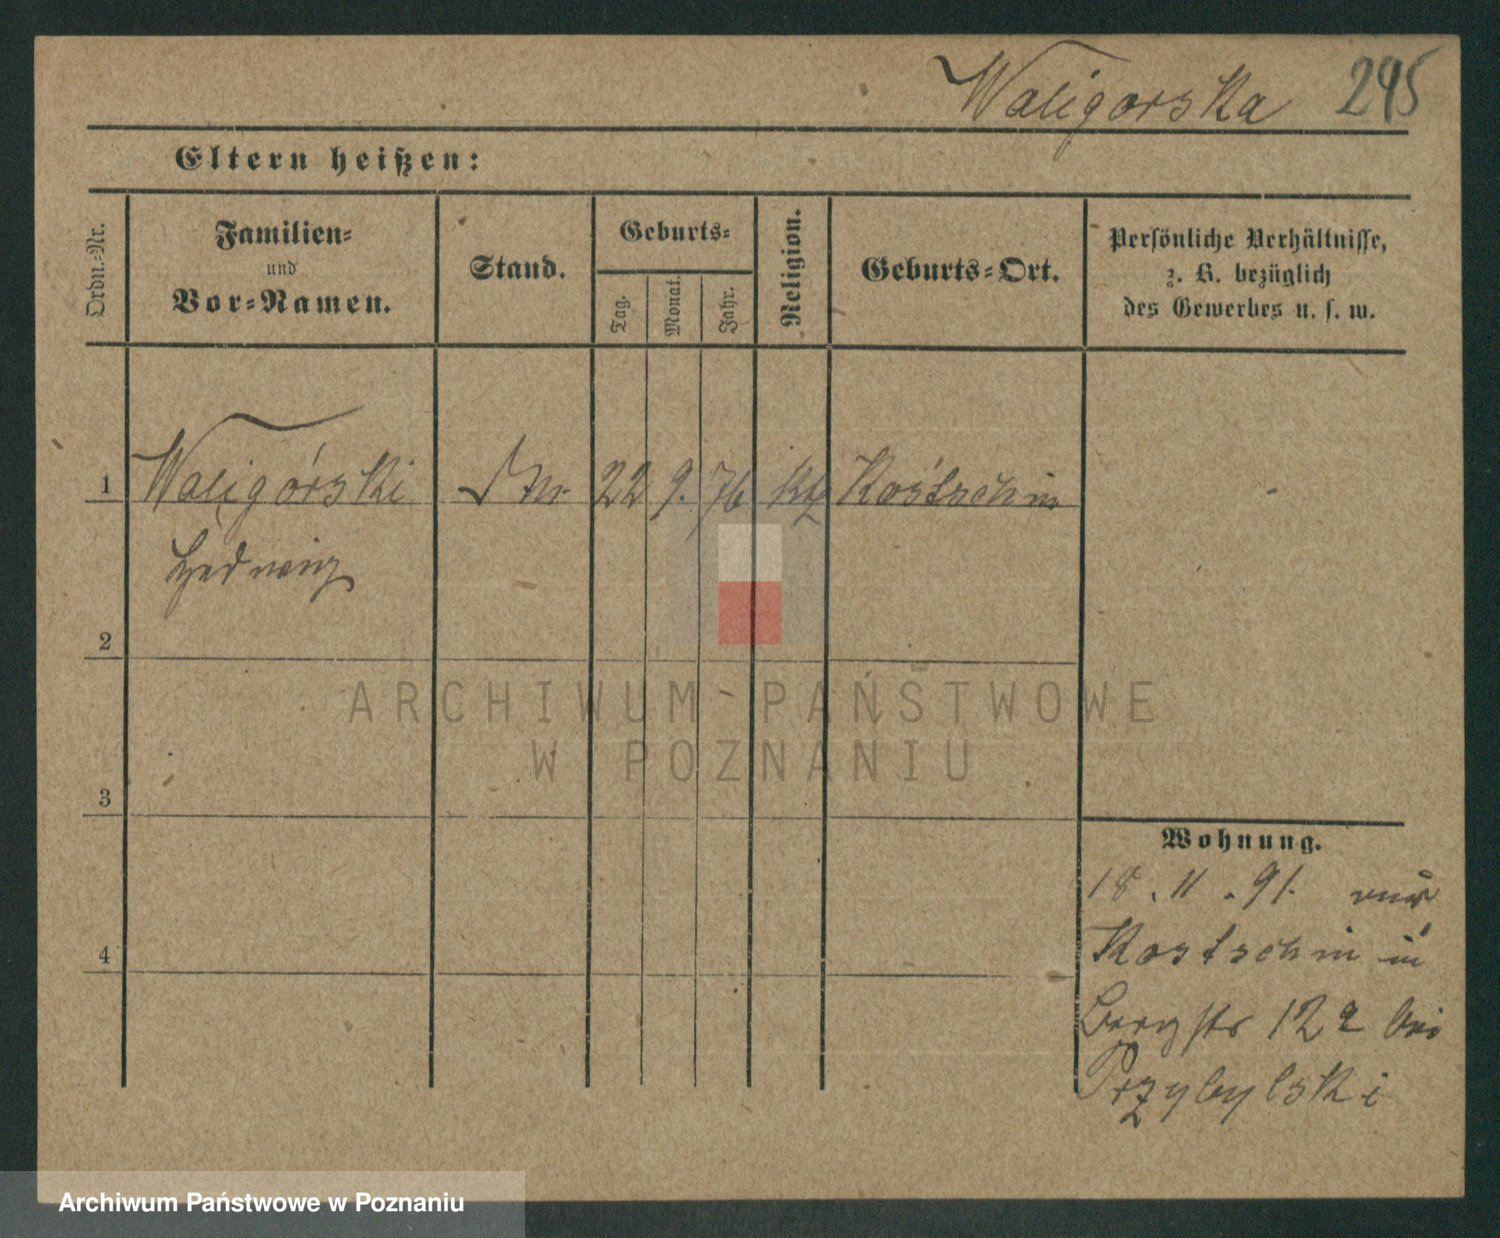 Waligorska 295
Eltern heißen:
Ordn.-Nr.
Familien-
und
Vor-Namen.
Stand.
Geburts-
Tag.
Monat.
Jahr.
Religion.
Geburts-Ort.
Persönliche Verhältnisse,
z. B. bezüglich
des Gewerbes u. s. w.
1 Waligórski 22 9. 76 kth Kostschin
Hedwig
2
ARCHIWUM PAŃSTWOWE
W POZNANIU
3
4
Wohnung.
18. 11. 91. aus
Kostschin in
Bergstr 12a bei
Przybylski
Archiwum Państwowe w Poznaniu